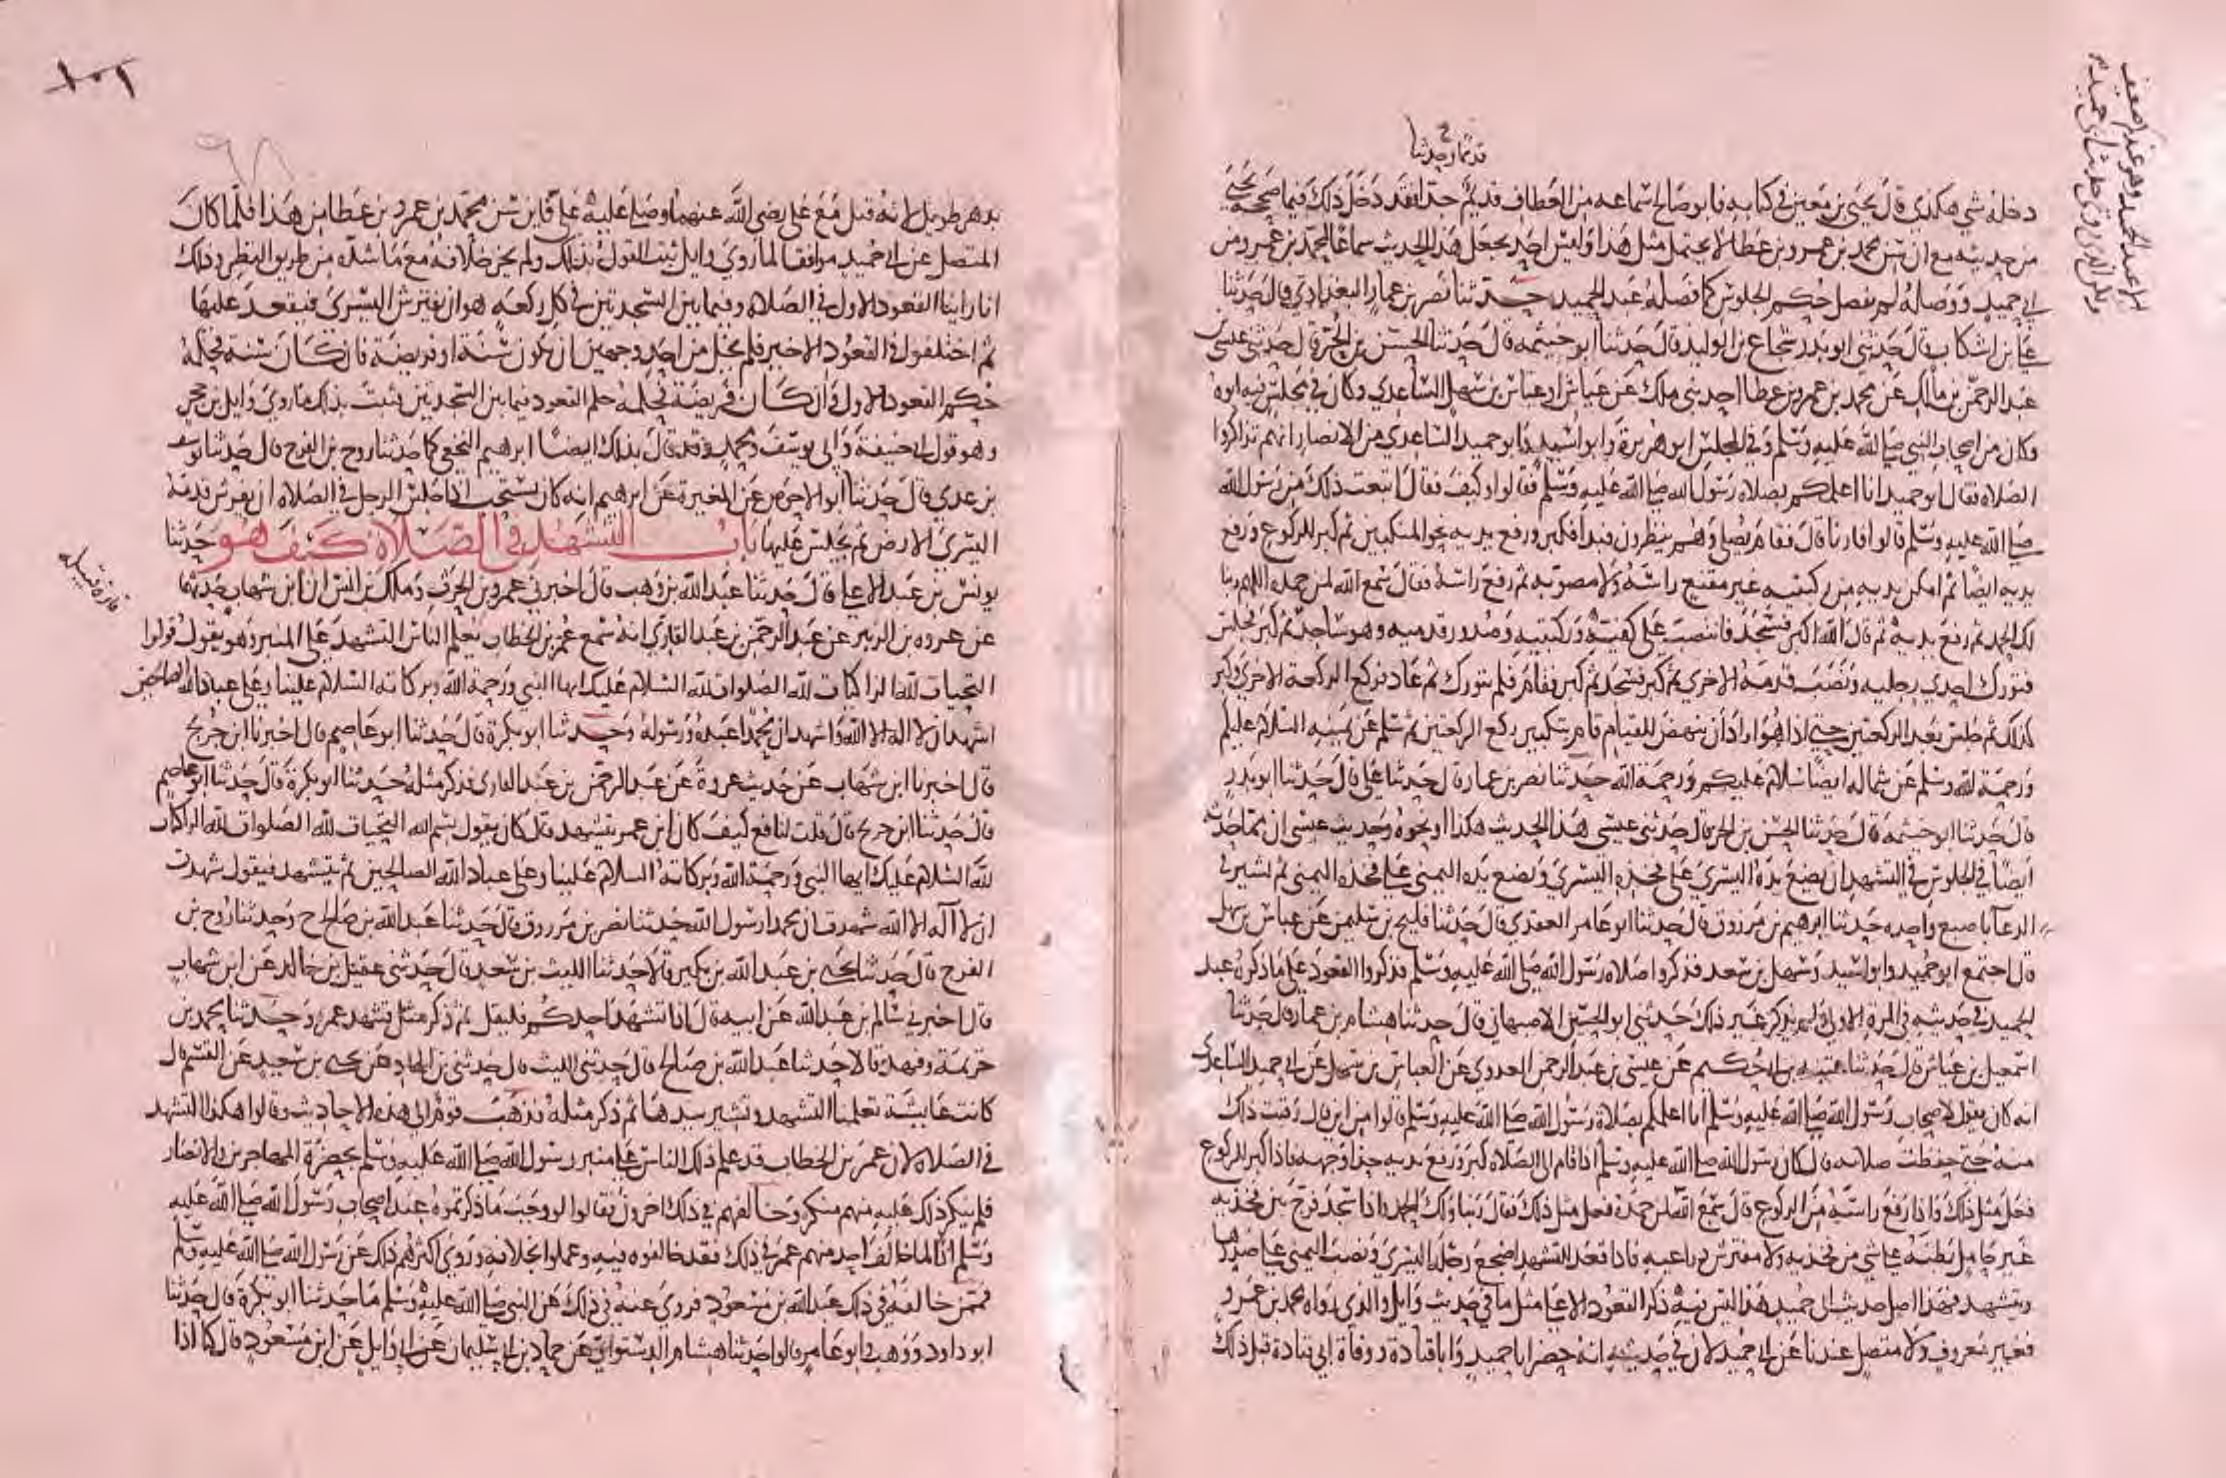 قديمًا وحدثنا
دخله شي هكذي قال يحيى بن معين في كتابه فابو صالح سماعه من العطاف قديم جدا فقد دخل ذلك فيما صححه يحيى
من حديثه مع ان سن محمد بن عمرو بن عطا لا يحتمل مثل هذا وليس احد يجعل هذا الحديث سماعا لمحمد بن عمرو من
ابي حميد ووصله لم يفصل حكم الجلوس كما فصله عبد الحميد حدثنا نصر بن عمار البغدادي قال حدثنا
علي بن اشكاب قال حدثني ابو بدر شجاع بن الوليد قال حدثنا ابو خيثمة قال حدثنا الحسن بن الحر قال حدثني عيسى بن
عبد الرحمن بن مالك عن محمد بن عمرو بن عطا احد بني ملك عن عياش او عباس بن سهل الساعدي وكان في مجلس فيه ابوه
وكان من اصحاب النبي صلى الله عليه وسلم وفي المجلس ابو هريرة وابو اسيد وابو حميد الساعدي من الانصار انهم تذاكروا
الصلاه فقال ابو حميد انا اعلمكم بصلاه رسول الله صلى الله عليه وسلم فقالوا وكيف فقال اتبعت ذلك من رسول الله
صلى الله عليه وسلم قالوا فارنا قال فقام يصلي وهم ينظرون فبدا فكبر ورفع يديه نحو المنكبين ثم كبر للركوع ورفع
يديه ايضا ثم امكن يديه من ركبتيه غير مقنع راسه ولا مصوبه ثم رفع راسه فقال سمع الله لمن حمده اللهم ربنا
لك الحمد ثم رفع يديه ثم قال الله اكبر فسجد فانتصب على كفيه وركبتيه وصدور قدميه وهو ساجد ثم كبر فجلس
فتورك احدي رجليه ونصب قدمه الاخري ثم كبر فسجد ثم كبر فقام فلم يتورك ثم عاد فركع الركعة الاخري وكبر
كذلك ثم جلس بعد الركعتين حتى اذا هو اراد ان ينهض للقيام قام بتكبير ثم ركع الركعتين ثم سلم عن يمينه السلام عليكم
ورحمة الله وسلم عن شماله ايضا السلام عليكم ورحمة الله حدثنا نصر بن عمار قال حدثنا علي قال حدثنا ابو بدر
قال حدثنا ابو خيثمة قال حدثنا الحسن بن الحر قال حدثني عيسى هذا الحديث هكذا او نحوه وحديث عيسى ان مما حدثه
ايضا في الجلوس في التشهد ان يضع يده اليسري على فخذه اليسري ويضع يده اليمنى على فخذه اليمنى ثم يشير في
الدعا باصبع واحده حدثنا ابرهيم بن مرزوق قال حدثنا ابو عامر العقدي قال حدثنا فليح بن سليمن عن عباس بن سهل
قال اجتمع ابو حميد وابو اسيد وسهل بن سعد فذكروا صلاه رسول الله صلى الله عليه وسلم فذكروا القعود على ما ذكره عبد
الحميد في حديثه في المرة الاولى ولم يذكر غير ذلك حدثني ابو الحسين الاصبهاني قال حدثنا هشام بن عمار قال حدثنا
اسمعيل بن عياش قال حدثنا عتبه بن ابي حكيم عن عيسى بن عبد الرحمن العدوي عن العباس بن سهل عن ابي حميد الساعدي
انه كان يقول لاصحاب رسول الله صلى الله عليه وسلم انا اعلمكم بصلاة رسول الله صلى الله عليه وسلم قالوا من اين قال رقبت ذلك
منه حتى حفظت صلاته قال كان رسول الله صلى الله عليه وسلم اذا قام الى الصلاه كبر ورفع يديه حذا وجهه فاذا كبر للركوع
فعل مثل ذلك واذا رفع راسه من الركوع قال سمع الله لمن حمده فعل مثل ذلك فقال ربنا ولك الحمد واذا سجد فرج بين فخذيه
غير حامل بطنه على شي من فخذيه ولا مفترش ذراعيه فاذا قعد للتشهد اضجع رجله اليسري ونصب اليمنى على صدرها
ويتشهد فهذا اصل حديث ابي حميد هذا ليس فيه ذكر القعود الا على مثل ما في حديث وايل والذي رواه محمد بن عمرو
فغير معروف ولا متصل عندنا عن ابي حميد لان في حديثه انه حضر ابا حميد وابا قتادة ووفاة ابي قتادة قبل ذلك
١٠١
بدهر طويل لانه قتل مع علي رضي الله عنهما وصلى عليه علي فاين سن محمد بن عمرو بن عطا من هذا فلما كان
المتصل عن ابي حميد موافقا لما روي وايل ثبت القول بذلك ولم يجز خلافه مع ما شده من طريق النظر وذلك
انا راينا القعود الاول في الصلاه وفيما بين السجدتين في كل ركعه هو ان يفترش اليسرى فيقعد عليها
ثم اختلفوا في القعود الاخير فلم يخل من احد وجهين ان يكون سنة او فريضة فان كان سنة فحكمه
حكم القعود الاول وان كان فريضة فحكمه حكم القعود فيما بين السجدتين فثبت بذلك ما روي وايل بن حجر
وهو قول ابي حنيفة وابي يوسف ومحمد وقد قال بذلك ايضا ابرهيم النخعي كما حدثنا روح بن الفرج قال حدثنا يوسف
بن عدي قال حدثنا ابو الاحوص عن المغيرة عن ابرهيم انه كان يستحب اذا جلس الرجل في الصلاه ان يفرش قدمه
اليسرى الارض ثم يجلس عليها باب التشهد في الصلاة كيف هو حدثنا
يونس بن عبد الاعلى قال حدثنا عبد الله بن وهب قال اخبرني عمرو بن الحرث وملك بن انس ان ابن شهاب حدثهما
عن عروه بن الزبير عن عبد الرحمن بن عبد القاري انه سمع عمر بن الخطاب يعلم الناس التشهد على المنبر وهو يقول قولوا
التحيات لله الزاكيات لله الصلوات لله السلام عليك ايها النبي ورحمة الله وبركاته السلام علينا وعلى عباد الله الصالحين
اشهد ان لا اله الا الله واشهد ان محمدا عبده ورسوله وحدثنا ابو بكرة قال حدثنا ابو عاصم قال اخبرنا ابن جريج
قال اخبرنا ابن شهاب عن حديث عروة عن عبد الرحمن بن عبد القاري فذكر مثله حدثنا ابو بكرة قال حدثنا ابو عاصم
قال حدثنا ابن جريج قال قلت لنافع كيف كان ابن عمر يتشهد قال كان يقول بسم الله التحيات لله الصلوات لله الزاكيات
لله السلام عليك ايها النبي ورحمة الله وبركاته السلام علينا وعلى عباد الله الصالحين ثم يتشهد فيقول شهدت
ان لا اله الا الله شهدت ان محمدا رسول الله حدثنا نصر بن مرزوق قال حدثنا عبد الله بن صالح ح وحدثنا روح بن
الفرج قال حدثنا يحيى بن عبد الله بن بكير قالا حدثنا الليث بن سعد قال حدثني عقيل بن خالد عن ابن شهاب
قال اخبرني سالم بن عبد الله عن ابيه قال اذا تشهد احدكم فليقل ثم ذكر مثل تشهد عمر وحدثنا محمد بن
خزيمة وفهد قالا حدثنا عبد الله بن صالح قال حدثني الليث قال حدثني بن الهاد عن يحيى بن سعيد عن القسم قال
كانت عايشة تعلمنا التشهد وتشير بيدها ثم ذكر مثله فذهب قوم الى هذه الاحاديث وقالوا هكذا التشهد
في الصلاه لان عمر بن الخطاب قد علم ذلك الناس على منبر رسول الله صلى الله عليه وسلم بحضرة المهاجرين والانصار
فلم ينكر ذلك عليه منهم منكر وخالفهم في ذلك اخرون فقالوا لو وجب ما ذكرتموه عند اصحاب رسول الله صلى الله عليه
وسلم اذا لما خالف احد منهم عمر في ذلك فقد خالفوه فيه وعملوا بخلافه وروي اكثرهم ذلك عن رسول الله صلى الله عليه وسلم
فممن خالفه في ذلك عبد الله بن مسعود فروي عنه في ذلك عن النبي صلى الله عليه وسلم ما حدثنا ابو بكرة قال حدثنا
ابو داود ووهب وابو عامر قالوا حدثنا هشام الدستوائي عن حماد بن ابي سليمان عن ابي وايل عن ابن مسعود قال كنا اذا